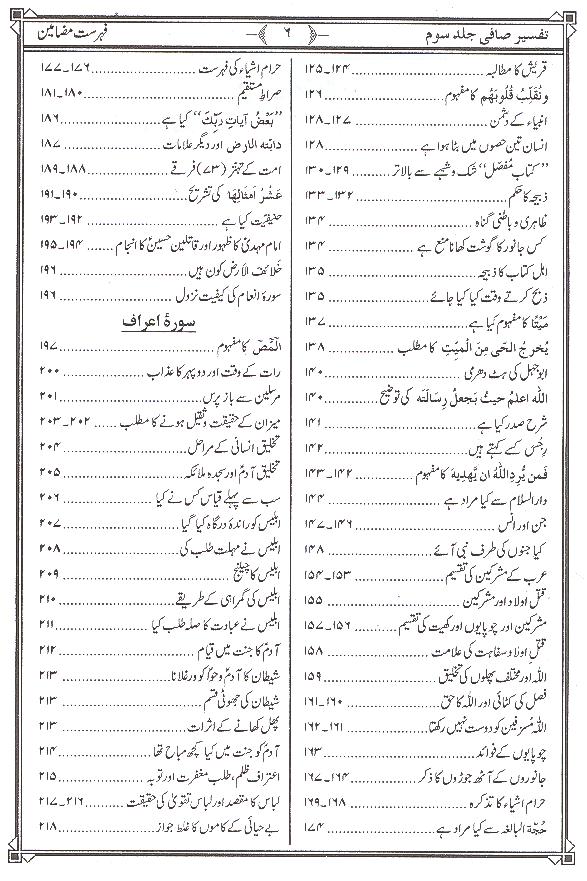 تفسیر صافی جلد سوم ۶ فہرست مضامین
قریش کا مطالبہ ۱۲۴۔۱۲۵
وَنُقَلِّبُ قُلُوبَهُم کا مفہوم ۱۲۶
انبیاء کے دشمن ۱۲۷۔۱۲۸
انسان تین حصوں میں بٹا ہوا ہے ۱۲۸
”کتاب مُفَصَّل“ شک و شبہے سے بالاتر ۱۲۹۔۱۳۰
ذبیحہ کا حکم ۱۳۲۔۱۳۳
ظاہری و باطنی گناہ ۱۳۴
کس جانور کا گوشت کھانا منع ہے ۱۳۴
اہل کتاب کا ذبیحہ ۱۳۵
ذبح کرتے وقت کیا کیا جائے ۱۳۵
مَیْتًا کا مفہوم کیا ہے ۱۳۷
یُخرِجُ الحَیَّ مِنَ المَیِّتِ کا مطلب ۱۳۸
ابوجہل کی ہٹ دھرمی ۱۴۰
اللّٰه اَعلَمُ حَیثُ یَجعَلُ رِسَالَتَه کی توضیح ۱۴۰
شرح صدر کیا ہے ۱۴۱
رِجْس کسے کہتے ہیں ۱۴۲
فَمَن یُّرِدِ اللّٰهُ ان یَّهدِیَهٗ کا مفہوم ۱۴۲۔۱۴۳
دارالسلام سے کیا مراد ہے ۱۴۴
جن اور انس ۱۴۶۔۱۴۷
کیا جنوں کی طرف نبی آئے ۱۴۸
عرب کے مشرکین کی تقسیم ۱۵۳۔۱۵۴
قتل اولاد اور مشرکین ۱۵۵
مشرکین اور چوپایوں اور کھیت کی تقسیم ۱۵۶۔۱۵۷
قتلِ اولاد سفاہت کی علامت ۱۵۸
اللہ اور مختلف پھلوں کی تخلیق ۱۵۹
فصل کی کٹائی اور اللہ کا حق ۱۶۰۔۱۶۱
اللہ مُسرِفین کو دوست نہیں رکھتا ۱۶۱۔۱۶۲
چوپایوں کے فوائد ۱۶۳
جانوروں کے آٹھ جوڑوں کا ذکر ۱۶۴۔۱۶۷
حرام اشیاء کا تذکرہ ۱۶۸۔۱۶۹
حُجَّة البالغہ سے کیا مراد ہے ۱۷۴
حرام اشیاء کی فہرست ۱۷۶۔۱۷۷
صراط مستقیم ۱۸۰۔۱۸۱
”بَعْضُ آیَاتِ رَبِّكَ“ کیا ہے ۱۸۶
دابّتہ الارض اور دیگر علامات ۱۸۷
امت کے تہتّر (۷۳) فرقے ۱۸۸۔۱۸۹
عَشْرُ اَمثَالِهَا کی تشریح ۱۹۰۔۱۹۱
حنیفیت کیا ہے ۱۹۲۔۱۹۳
امام مہدیؑ کا ظہور اور قاتلین حسینؑ کا انجام ۱۹۴۔۱۹۵
خَلائف الاَرض کون ہیں ۱۹۶
سورۂ انعام کی کیفیت نزول ۱۹۶
سورۂ اعراف
الٓمٓصٓ کا مفہوم ۱۹۷
رات کے وقت اور دوپہر کا عذاب ۲۰۰
مرسلین سے باز پرس ۲۰۱
میزان کے حقیقت و ثقیل ہونے کا مطلب ۲۰۲۔۲۰۳
تخلیق انسانی کے مراحل ۲۰۴
تخلیق آدمؑ اور سجدہ ملائکہ ۲۰۵
سب سے پہلے قیاس کس نے کیا ۲۰۶
ابلیس کو راندۂ درگاہ کیا گیا ۲۰۷
ابلیس نے مہلت طلب کی ۲۰۸
ابلیس کا چیلنج ۲۰۹
ابلیس کی گمراہی کے طریقے ۲۱۰
ابلیس نے عبادت کا صلہ طلب کیا ۲۱۱
آدمؑ کا جنت میں قیام ۲۱۲
شیطان کا آدمؑ و حوّاؑ کو ورغلانا ۲۱۳
شیطان کی جھوٹی قسم ۲۱۳
پھل کھانے کے اثرات ۲۱۳
آدمؑ کو جنت میں کیا کچھ مباح تھا ۲۱۴
اعتراف ظلم، طلب مغفرت اور توبہ ۲۱۵
لباس کا مقصد اور لباس تقویٰ کی حقیقت ۲۱۶۔۲۱۷
بے حیائی کے کاموں کا غلط جواز ۲۱۸